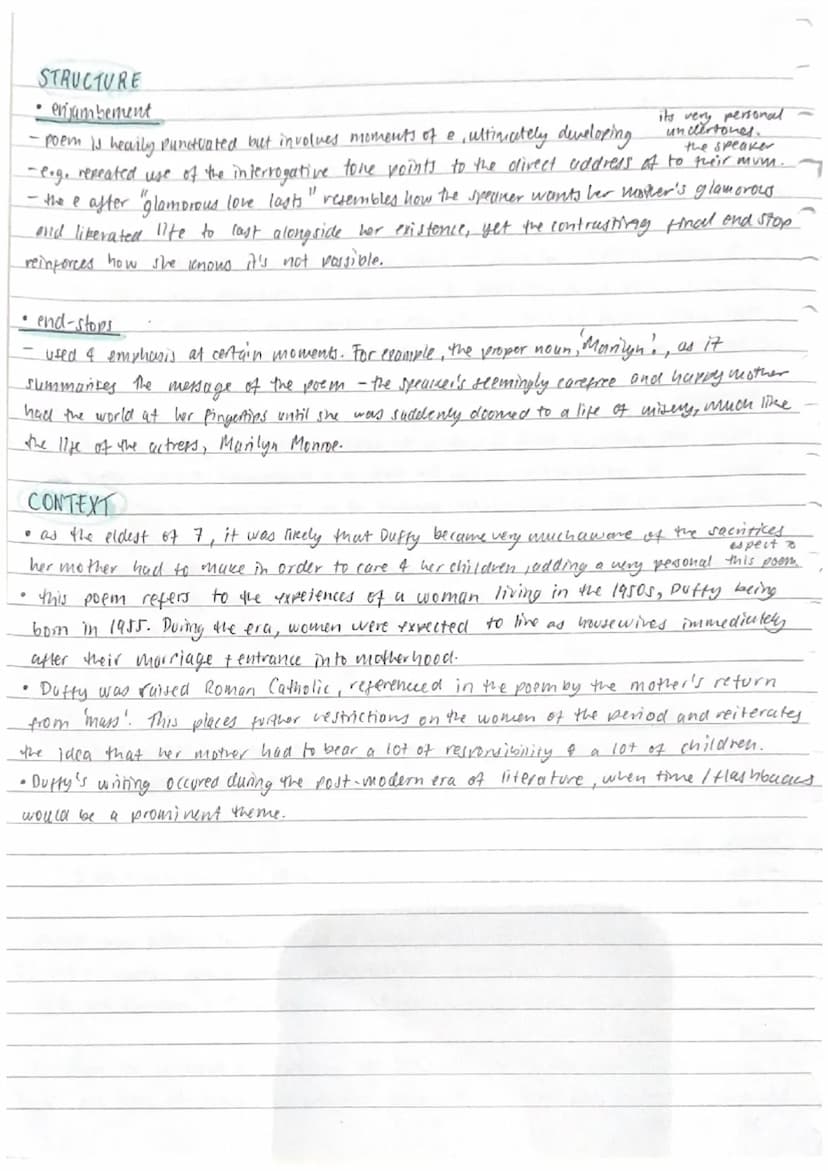 STRUCTURE
• enjambement
- poem is heavily punctuated but involves moments of e, ultimately developing its very personal undertones.
- e.g. repeated use of the interrogative tone points to the direct address of the speaker to their mum.
- the e after "glamorous love lasts" resembles how the speaker wants her mother's glamorous
and liberated life to last alongside her existence, yet the contrasting final end stop
reinforces how she knows it's not possible.
• end-stops
- used 4 emphasis at certain moments. For example, the proper noun, 'Marilyn.', as it
summarises the message of the poem - the speaker's seemingly carefree and happy mother
had the world at her fingertips until she was suddenly doomed to a life of misery, much like
the life of the actress, Marilyn Monroe.
CONTEXT
• as the eldest of 7, it was likely that Duffy became very much aware of the sacrifices
her mother had to make in order to care 4 her children, adding a very personal aspect to this poem.
• this poem refers to the experiences of a woman living in the 1950s, Duffy being
born in 1955. During the era, women were expected to live as housewives immediately
after their marriage + entrance into motherhood.
• Duffy was raised Roman Catholic, referenced in the poem by the mother's return
from 'mass'. This places further restrictions on the women of the period and reiterates
the idea that her mother had to bear a lot of responsibility & a lot of children.
• Duffy's writing occured during the post-modern era of literature, when time / flashbacks
would be a prominent theme.